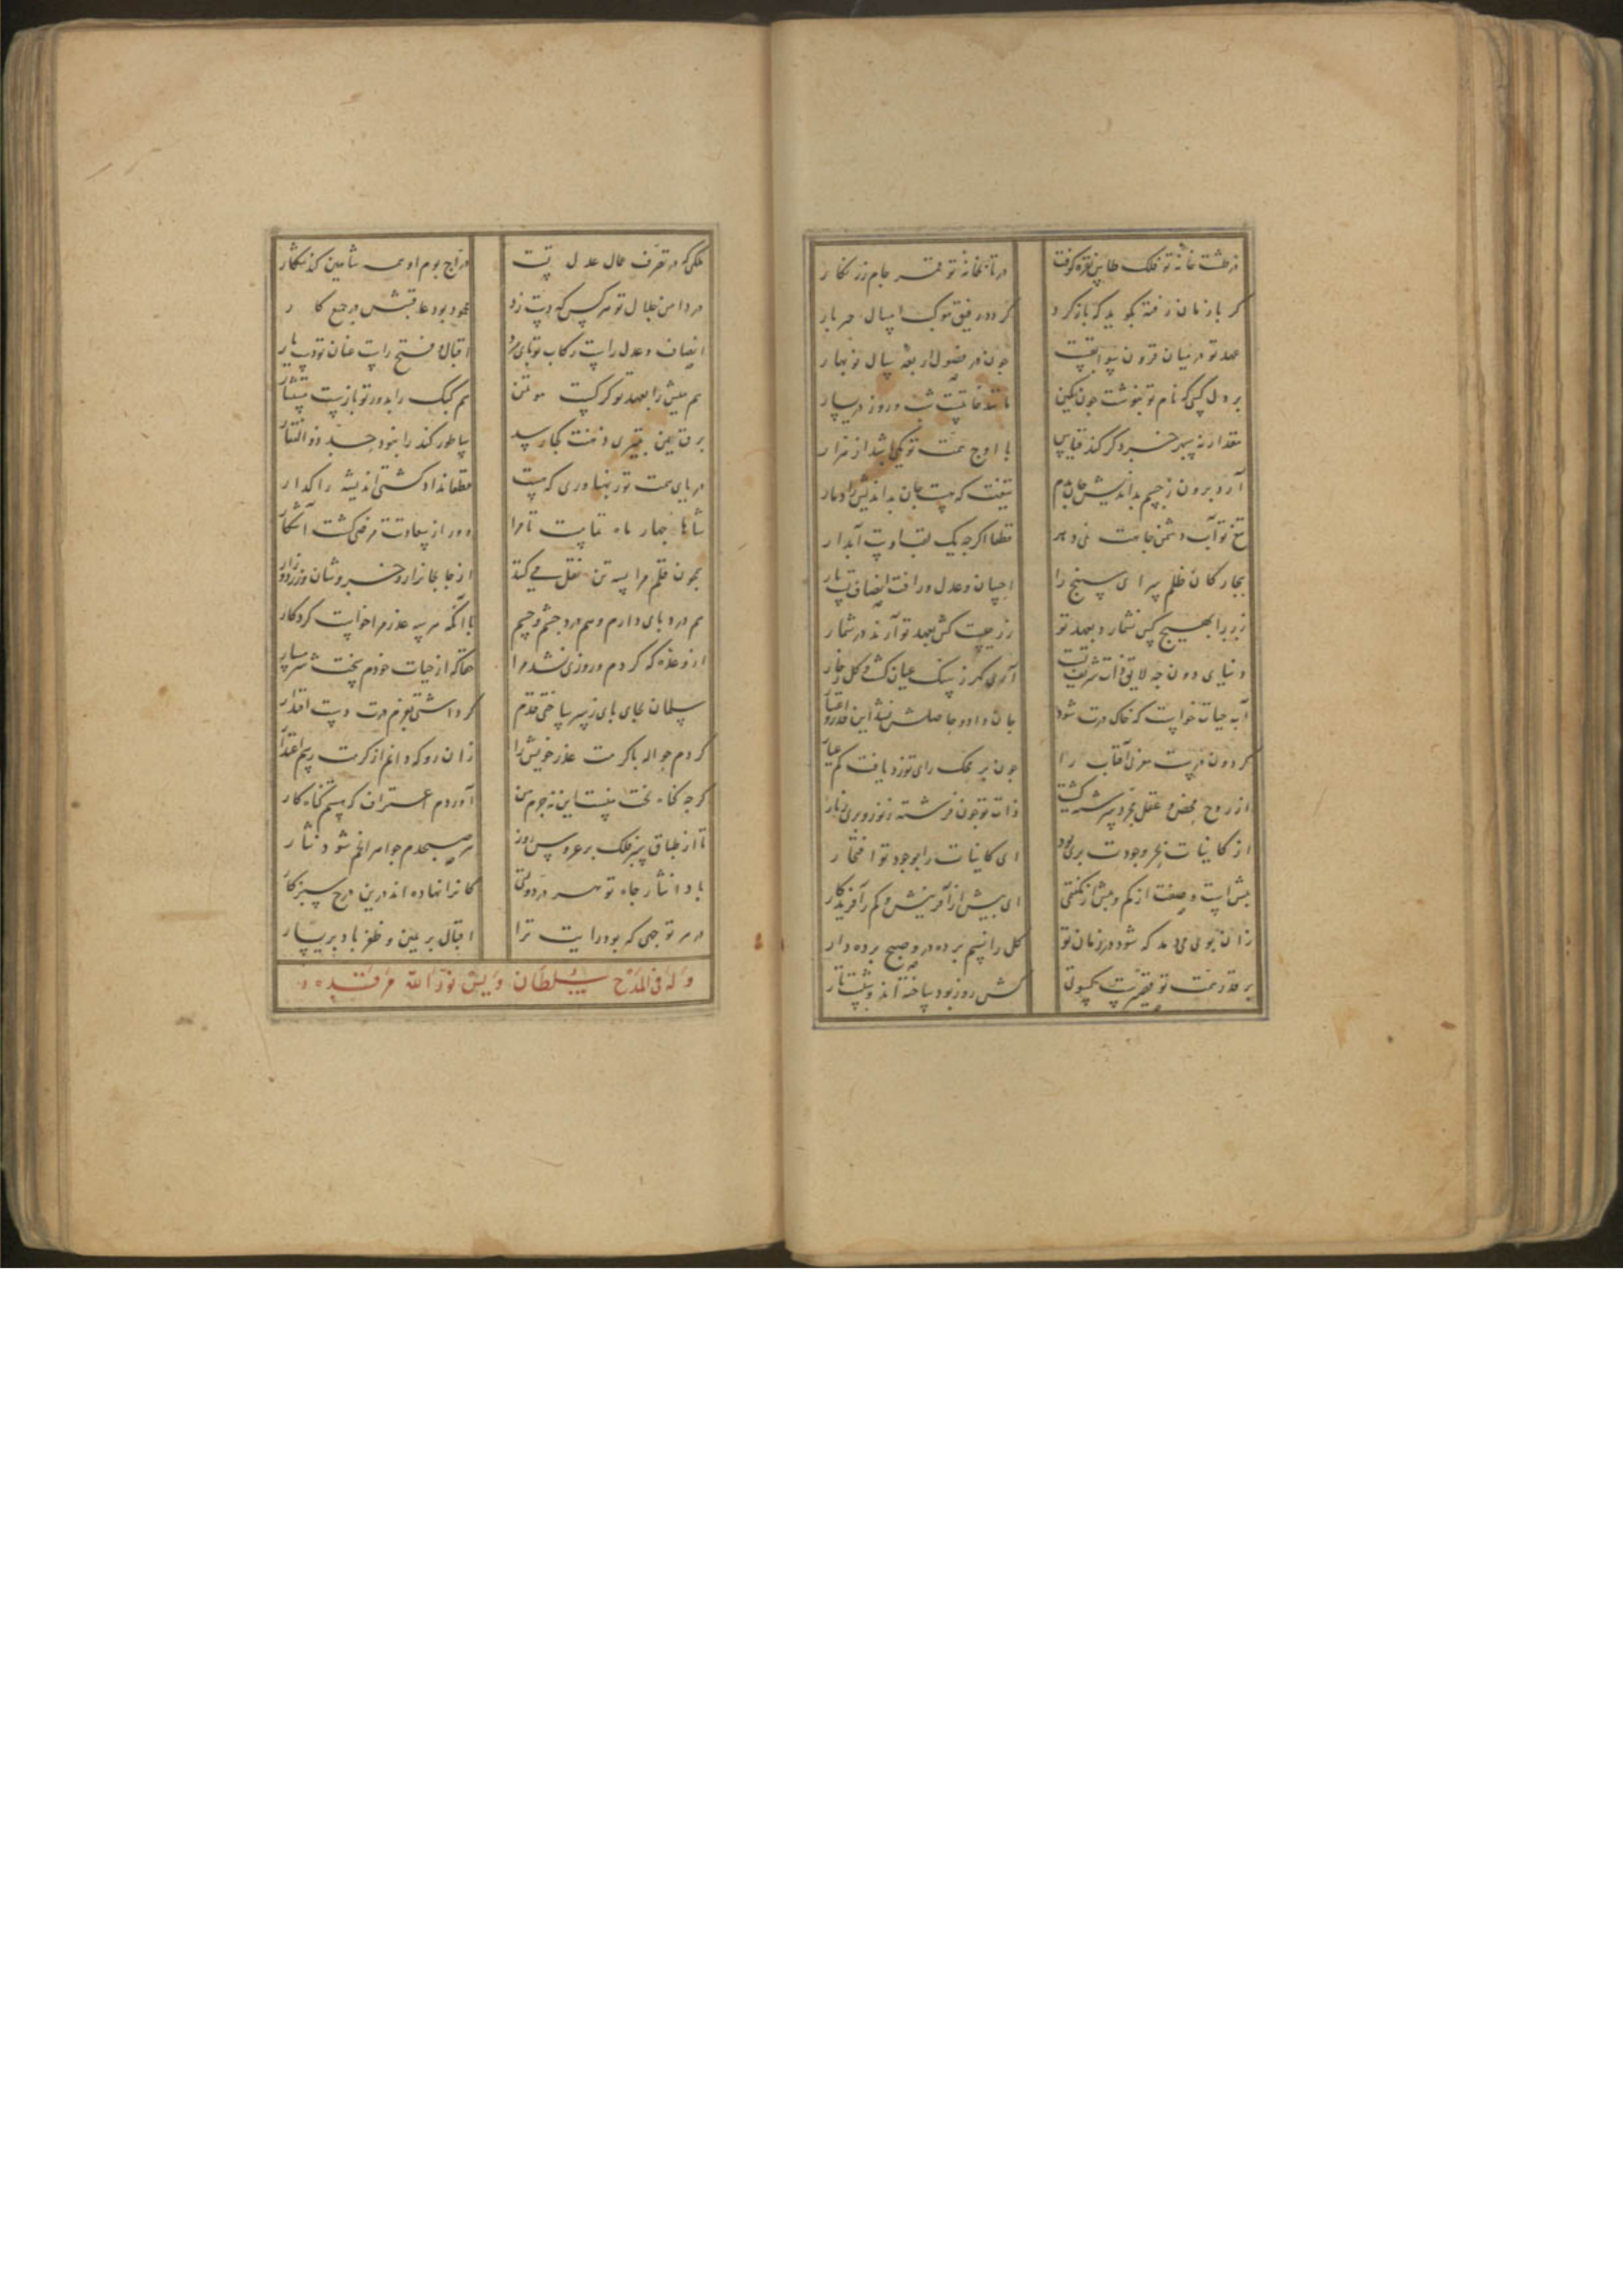 در طشت خانهٔ تو فلک طاس نقره کوفت در تابخانهٔ تو قمر جام زرنکار
کر با زمان رفته بکوید که باز کرد کردد رفیق موکب امسال جر پار
عهد تو در میان قرون سوابقت چون در فصول اربعه سال نو بهار
بر دل کسی که نام تو ننوشت چون نکین
مقدار نه سپهر خرد کر کند قیاس با اوج همت تو یکی باشد از هزار
آرد برون ز جسم بداندیش جان بدم تیغت که هست جان بداندیش را دمار
تیغ تو آب دشمن جاهت نی و بر قطعا اکرچه یک
بیچارکان ظلم سرای سپنج را احسان و عدل و رافت انصاف تست یار
زر را بهیچ کس نشمارد بعهد تو زر چیست کش بعهد تو آرند در شمار
دنیای دون چه لایق ذات شریف تست آری کهر ز سنک عیان کشت و کل ز خار
آب حیات خواست که خاک درت شود جان داد و حاصلش نشد این قدر و اعتبار
کردون درست مغربی آفتاب را چون بر محک رای تو زد یافت کم عیار
از روح محض و عقل مجرد سرشته کشت ذات تو چون فرشته
از کاینات بجر وجودت بری بود ای کاینات را بوجود تو افتخار
بیش است وصفت از کم و بیش از نکفتی ای بیش از آفرینش و کم ز آفریدکار
زان بوی می دمد که شود در زمان تو کل را نسیم پرده در و صبح پرده دار
بر قد همت تو قصیرست کسوتی کش روز پود ساخته اند و شبست تار
ملکی که در تصرف عمال عدل تست دراج بوم او همه شاهین کند شکار
در دامن جلال تو هر کس که دست زد محمود بود عاقبتش مرجع کار
انصاف و عدل راست رکاب تو پای مرد اقبال و فتح راست عنان تو دستیار
هم میش را بعهد تو کرکست موتمن هم کبک را بدور تو بازست مستشار
برق یمن بتیزی ذهنت کجا رسد ساطور کند را نبود حد ذوالفقار
دریای همت تو ز پهناوری که هست قطعا نداد کشتی اندیشه را کذار
شاها چهار ماه تمامست تا مرا دور از سعادتت مرضی کشت آشکار
همچون قلم مرا بسه تن نقل می کنند از جا بجا نزار و خروشان و زرد و زار
هم درد پای دارم و هم درد چشم و چشم با آنکه هر سه عذر مرا خواست کردکار
از وعده که کردم و روزی نشد مرا حقا که از حیات خودم سخت شرمسار
سلمان بجای پای ز سر ساختی قدم کر داشتی بعزم درت دست اقتدار
کردم حواله با کرمت عذر خویش را زان رو که دانم از کرمت رسم اعتذار
کرچه کناه بخت منست این نه جرم من آوردم اعتراف که هستم کناه کار
تا از طباق سبز فلک بر عروس روز هر صبحدم جواهر انجم شود نثار
بادا نثار جاه تو هر در دولتی کانرا نهاده اند درین درج سبز کار
در هر توجهی که بود رایت ترا اقبال بر یمین و ظفر باد بر یسار
وله فی المدح سلطان ویس نور الله مرقده